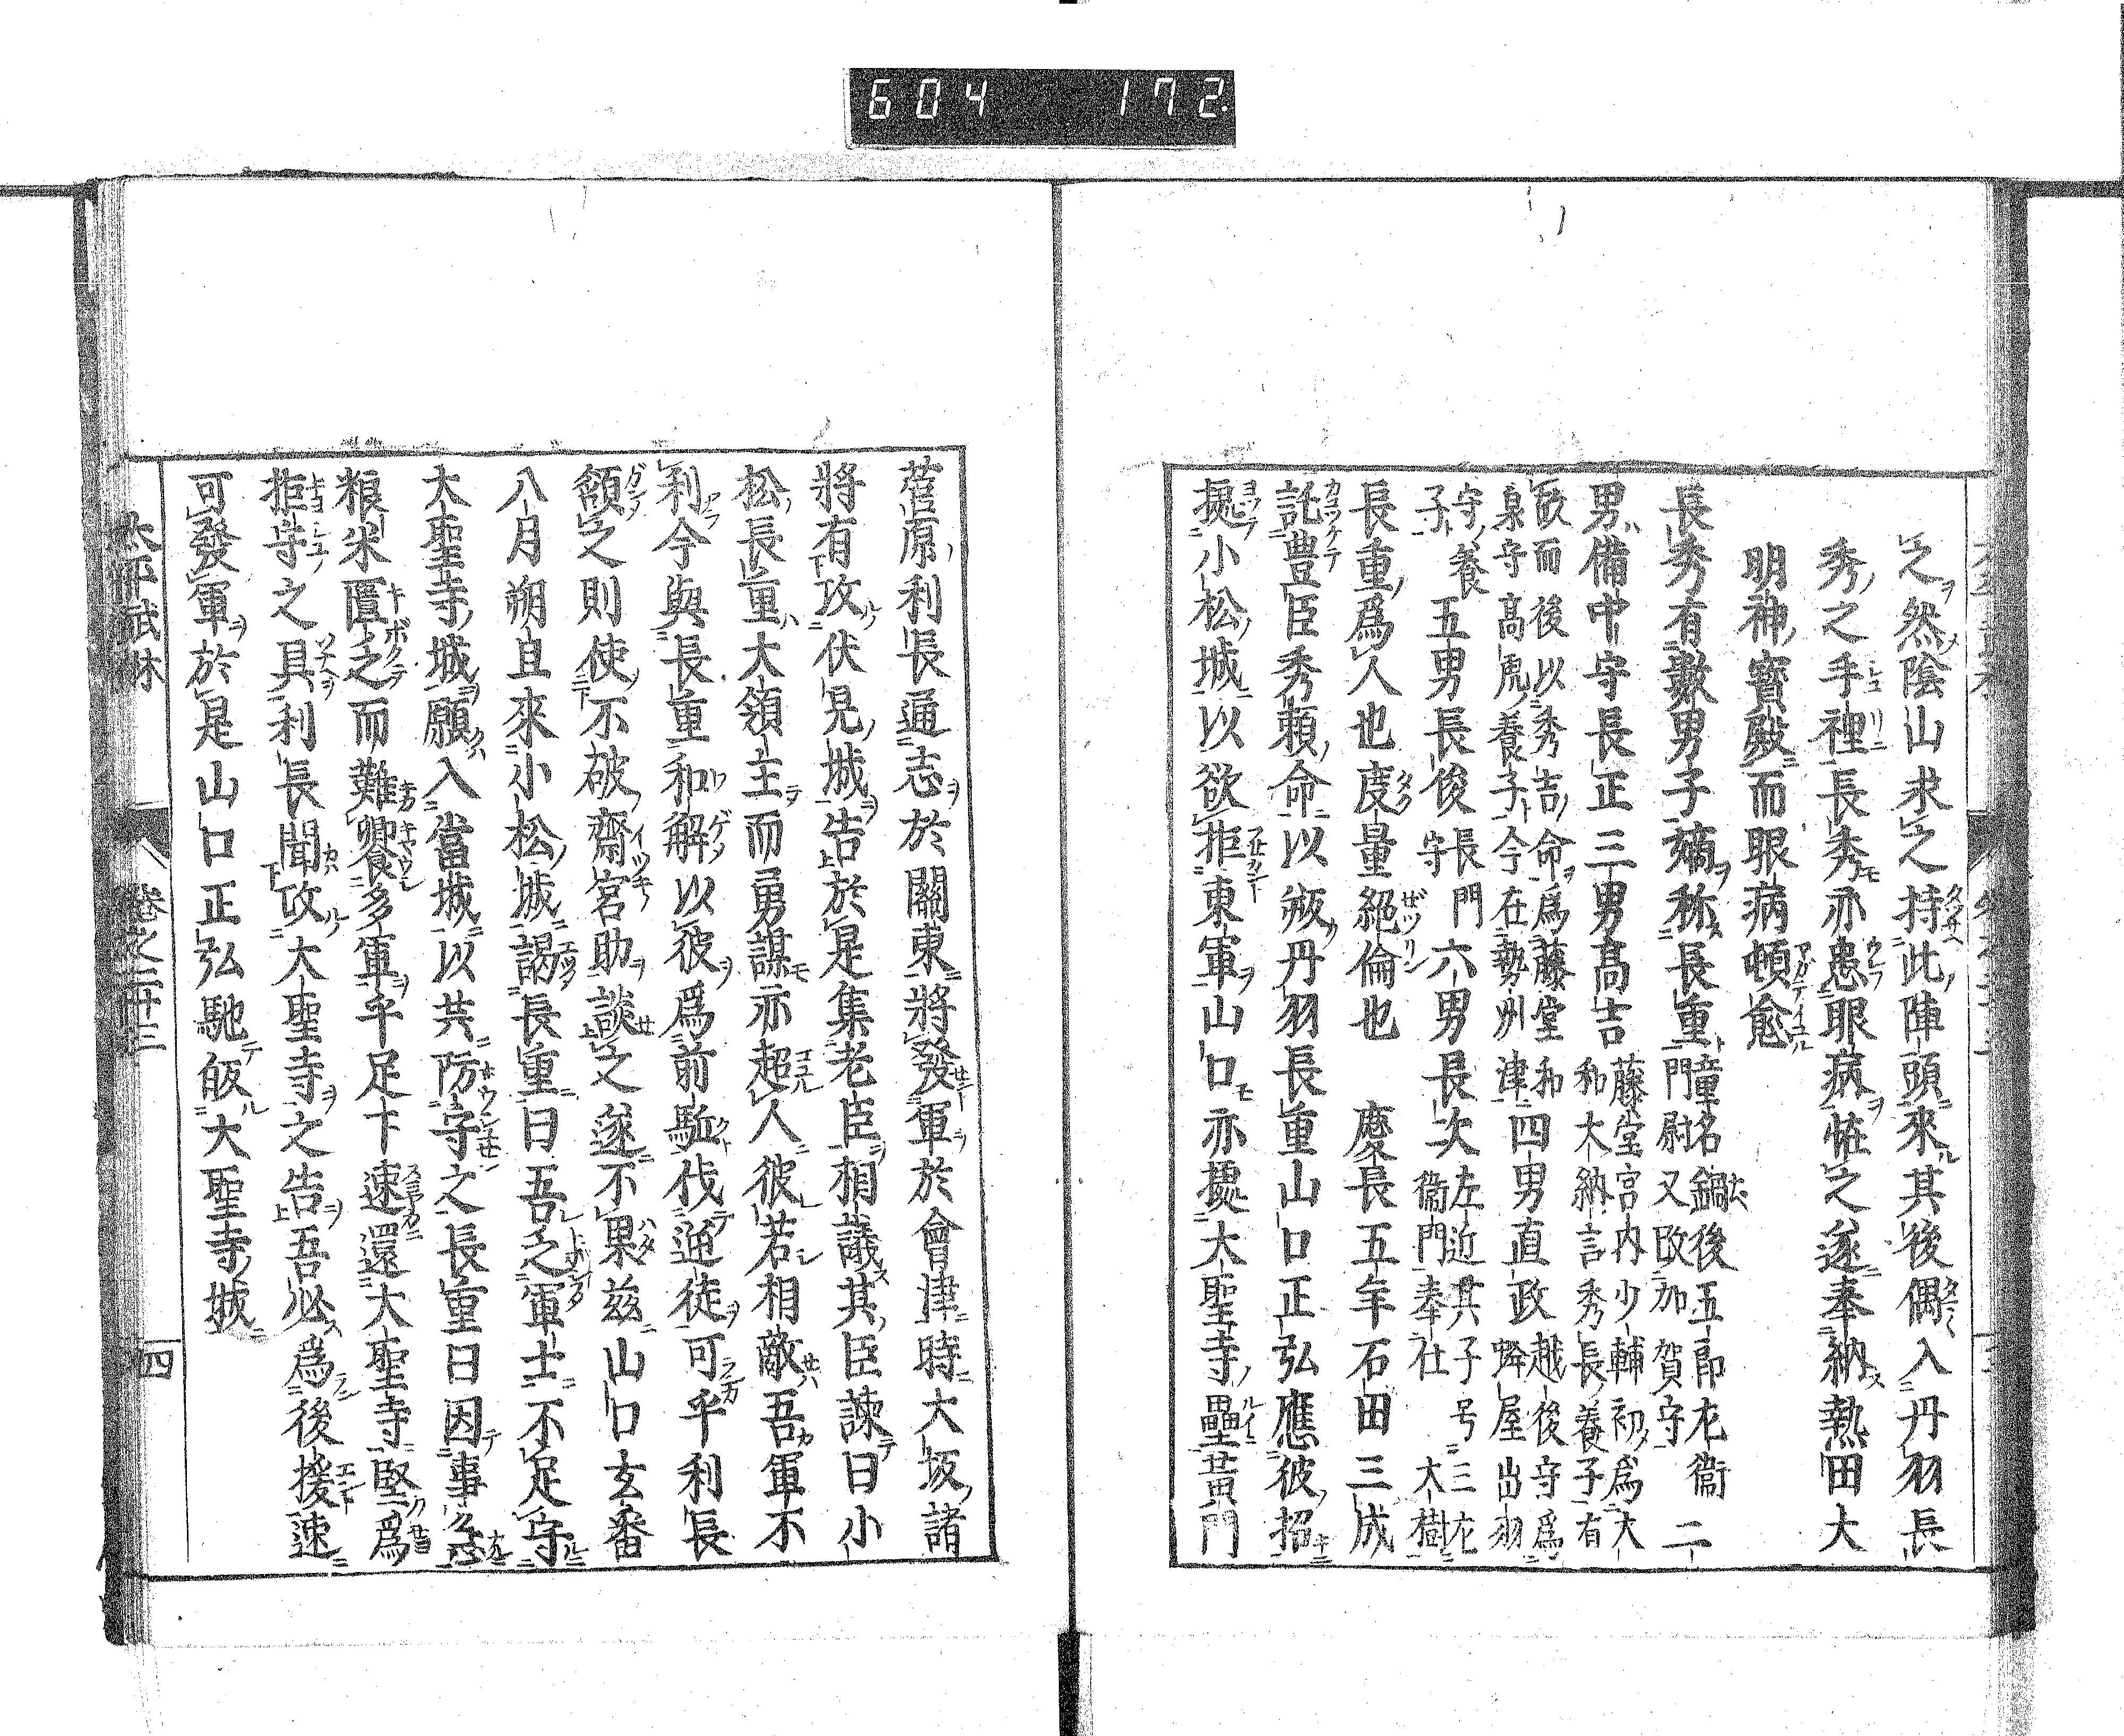 604 172
之然陰山求之持此陣頭來其後偶入丹羽長
秀之手裡長秀亦患眼病恠之遂奉納熱田大
明神寳殿而眼病頓愈
長秀有數男子嫡称長重童名鍋後五郎左衞門尉又改加賀守二
男備中守長正三男髙吉藤堂宮内少輔初爲大和大納言秀長養子有
故而後以秀吉命爲藤堂和泉守高虎養子今在勢州津四男直政越後守爲蜂屋出羽
守養子五男長俊長門守六男長次左近其子号三左衞門奉仕大樹
長重爲人也度量絕倫也 慶長五年石田三成
託豊臣秀頼命以叛丹羽長重山口正弘應彼招
據小松城以欲拒東軍山口亦據大聖寺壘黄門
菅原利長通志於關東將發軍於會津時大坂諸
將有攻伏見城告於是集老臣相議其臣諫曰小
松長重大領主而勇謀亦超人彼若相敵吾軍不
利今與長重和解以彼爲前駈伐逆徒可乎利長
領之則使不破齋宮助談之遂不果茲山口玄番
八月朔旦來小松城謁長重曰吾乏軍士不足守
大聖寺城願入當城以共防守之長重曰因事急
粮米匱之而難饗多軍乎足下速還大聖寺堅爲
拒守之具利長聞攻大聖寺之告吾必爲後援速
可發軍於是山口正弘馳皈大聖寺城
太平武林 卷之二十三 四